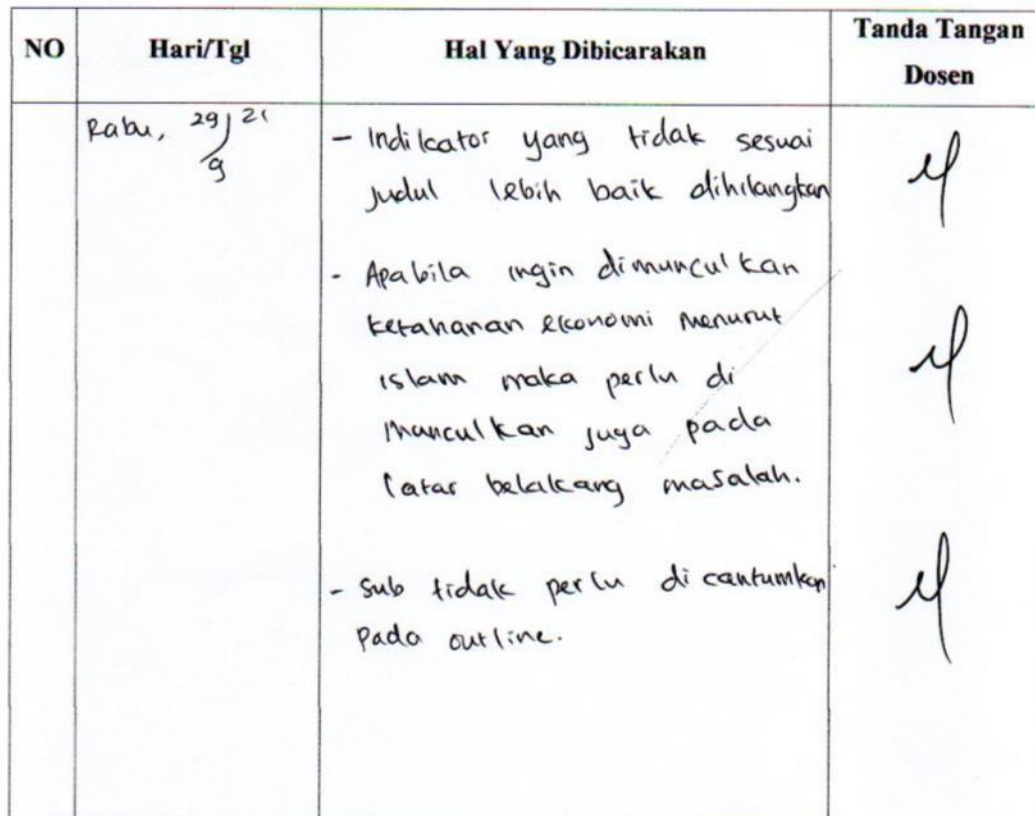 NO Hari/Tgl Hal Yang Dibicarakan Tanda Tangan Dosen
Rabu, 29/9 21
- Indikator yang tidak sesuai
judul lebih baik dihilangkan
- Apabila ingin dimunculkan
ketahanan ekonomi menurut
islam maka perlu di
munculkan juga pada
latar belakang masalah.
- Sub tidak perlu di cantumkan
pada outline.